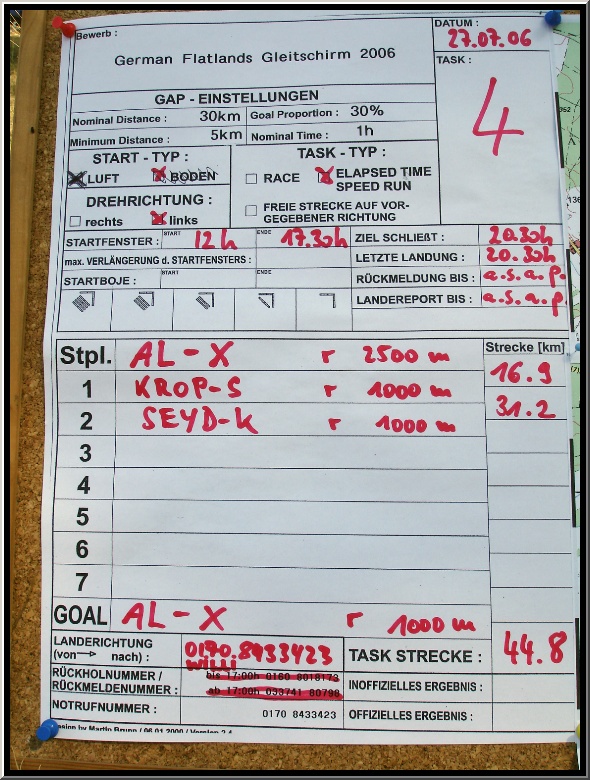 Bewerb :
German Flatlands Gleitschirm 2006
DATUM :
27.07.06
TASK :
4
GAP - EINSTELLUNGEN
Nominal Distance : 30km Goal Proportion : 30%
Minimum Distance : 5km Nominal Time : 1h
START - TYP :
LUFT BODEN
DREHRICHTUNG :
rechts links
TASK - TYP :
RACE ELAPSED TIME
SPEED RUN
FREIE STRECKE AUF VOR-
GEGEBENER RICHTUNG
STARTFENSTER : START 12h ENDE 17.30h
max. VERLÄNGERUNG d. STARTFENSTERS :
STARTBOJE : START ENDE
ZIEL SCHLIEßT : 20.30h
LETZTE LANDUNG : 20.30h
RÜCKMELDUNG BIS : a.s.a.p.
LANDEREPORT BIS : a.s.a.p.
Strecke [km]
Stpl. AL-X r 2500 m
16.9
1 KROP-S r 1000 m
31.2
2 SEYD-K r 1000 m
3
4
5
6
7
GOAL AL-X r 1000 m
44.8
LANDERICHTUNG
(von nach) :
0170.8433423
Willi
RÜCKHOLNUMMER /
RÜCKMELDENUMMER :
bis 17:00h 0160 8018173
ab 17:00h 033741 80798
NOTRUFNUMMER :
0170 8433423
TASK STRECKE :
INOFFIZIELLES ERGEBNIS :
OFFIZIELLES ERGEBNIS :